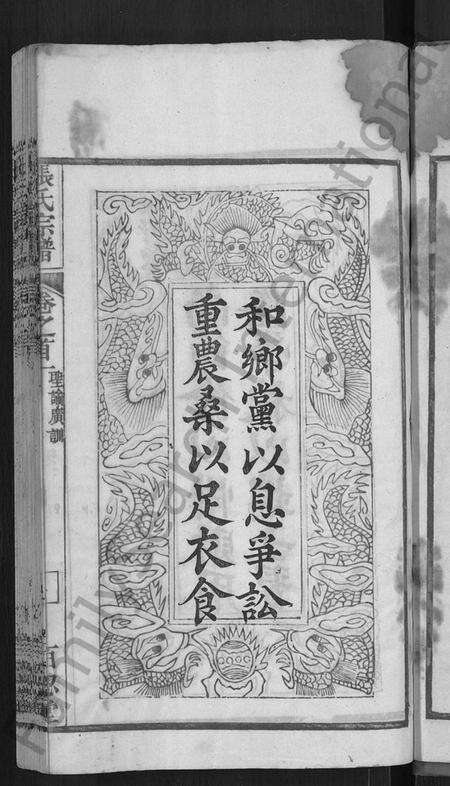 和鄉黨以息爭訟
重農桑以足衣食
張氏宗譜
卷之首
聖諭廣訓